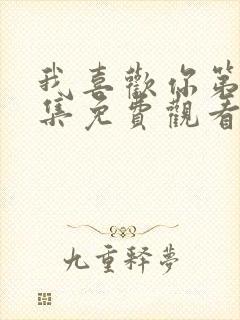 我喜歡你第
集免費觀看
九重釋夢